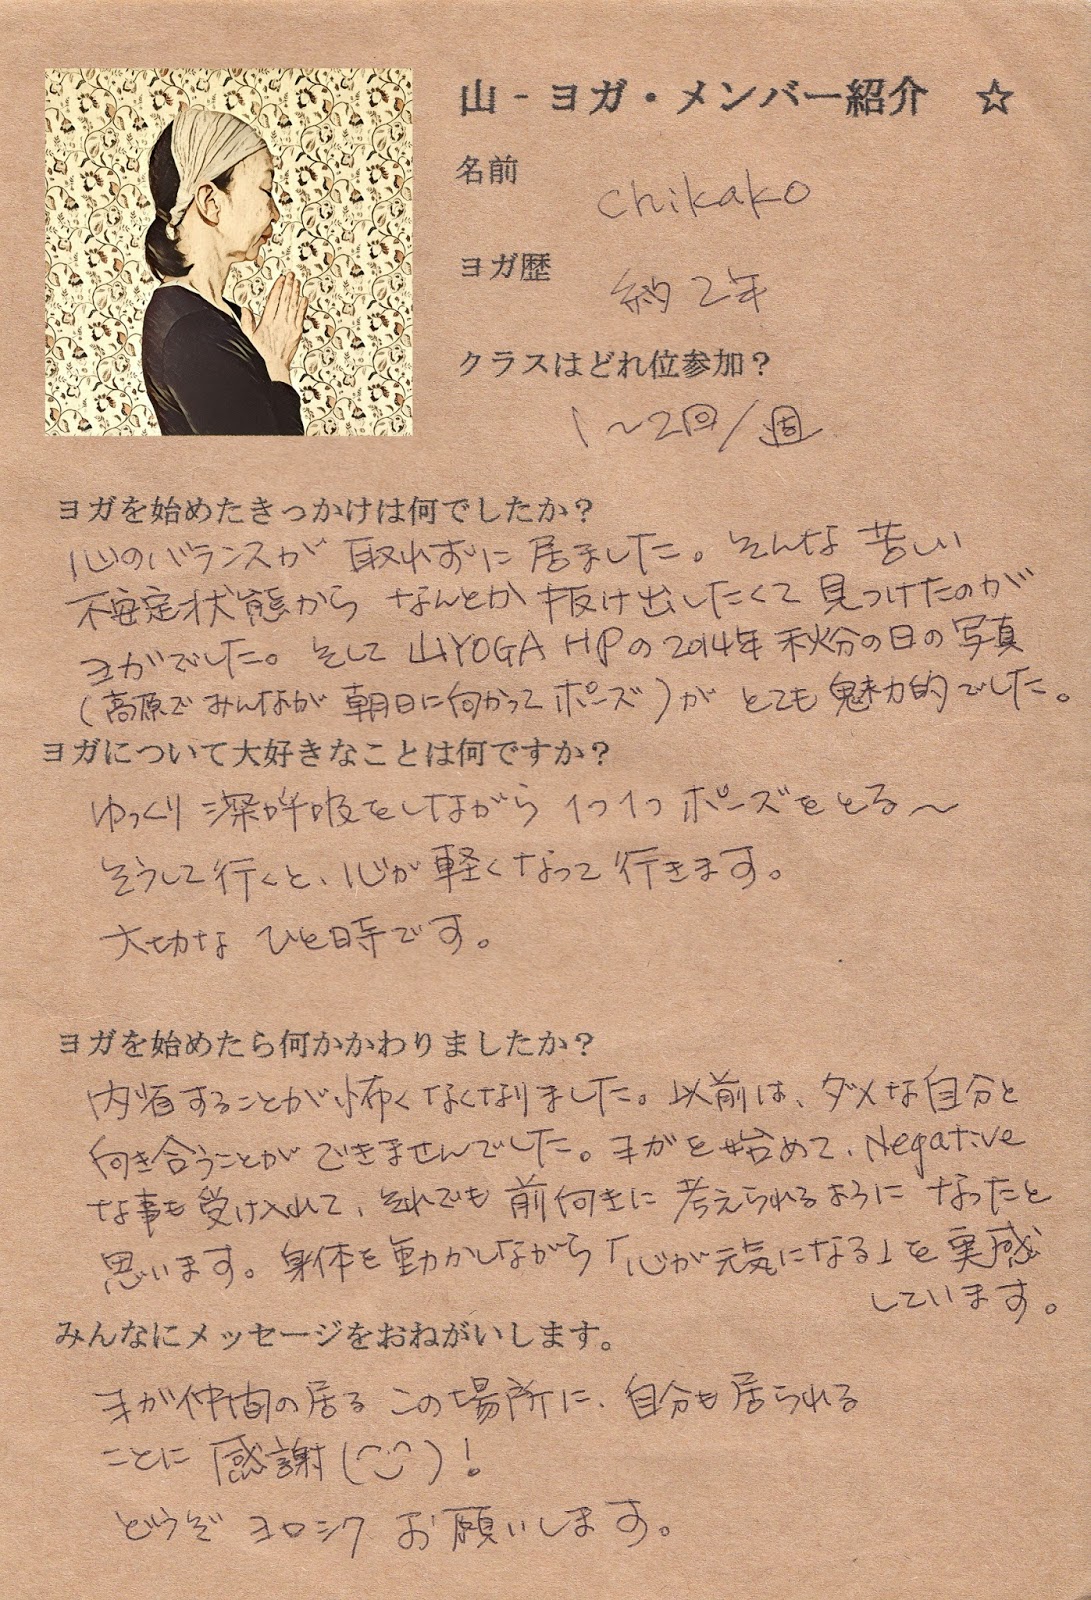 山-ヨガ・メンバー紹介　☆
名前
chikako
ヨガ歴
約2年
クラスはどれ位参加？
1～2回/週
ヨガを始めたきっかけは何でしたか？
心のバランスが取れずに居ました。そんな苦しい
不安定状態からなんとか抜け出したくて見つけたのが
ヨガでした。そして山YOGA HPの2014年秋分の日の写真
(高原でみんなが朝日に向かってポーズ)がとても魅力的でした。
ヨガについて大好きなことは何ですか？
ゆっくり深呼吸をしながら1つ1つポーズをとる～
そうして行くと、心が軽くなって行きます。
大切なひと時です。
ヨガを始めたら何かかわりましたか？
内省することが怖くなくなりました。以前は、ダメな自分と
向き合うことができませんでした。ヨガを始めて、Negative
な事も受け入れて、それでも前向きに考えられるようになったと
思います。身体を動かしながら「心が元気になる」を実感
しています。
みんなにメッセージをおねがいします。
ヨガ仲間の居るこの場所に、自分も居られる
ことに感謝(◠‿◠)！
どうぞヨロシクお願いします。